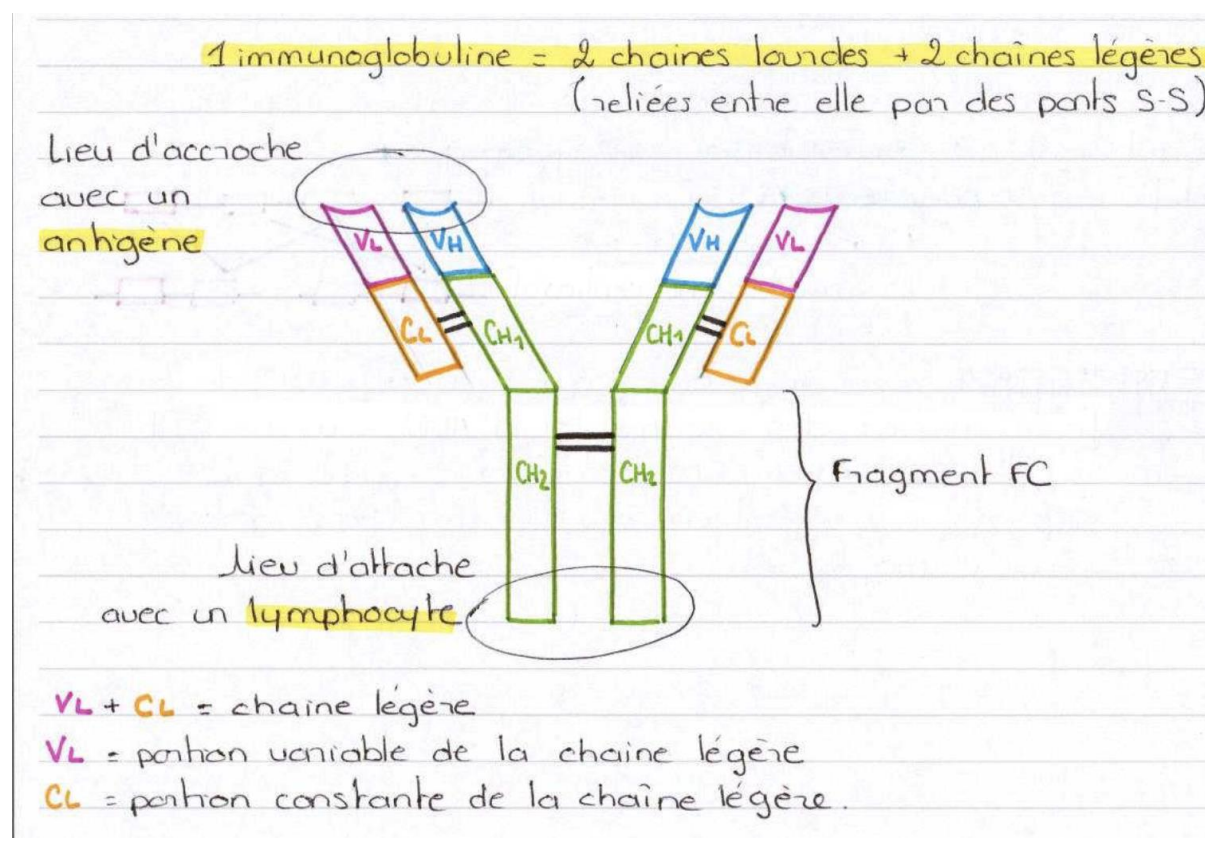 1 immunoglobuline = 2 chaines lourdes + 2 chaînes légères
(reliées entre elle par des ponts S-S)
Lieu d'accroche
avec un
antigène
VL VH VH VL
CL CH1 CH1 CL
CH2 CH2
Fragment FC
lieu d'attache
avec un lymphocyte
VL + CL = chaine légère
VL = portion variable de la chaine légère
CL = portion constante de la chaîne légère.